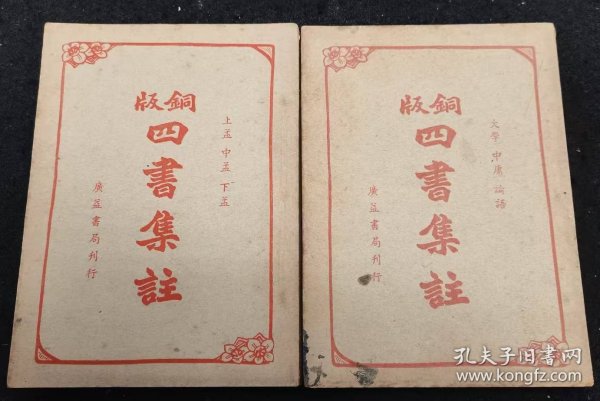 銅版
四書集註
上孟 中孟 下孟
廣益書局刊行
銅版
四書集註
大學 中庸 論語
廣益書局刊行
孔夫子旧书网
www.kongfz.com